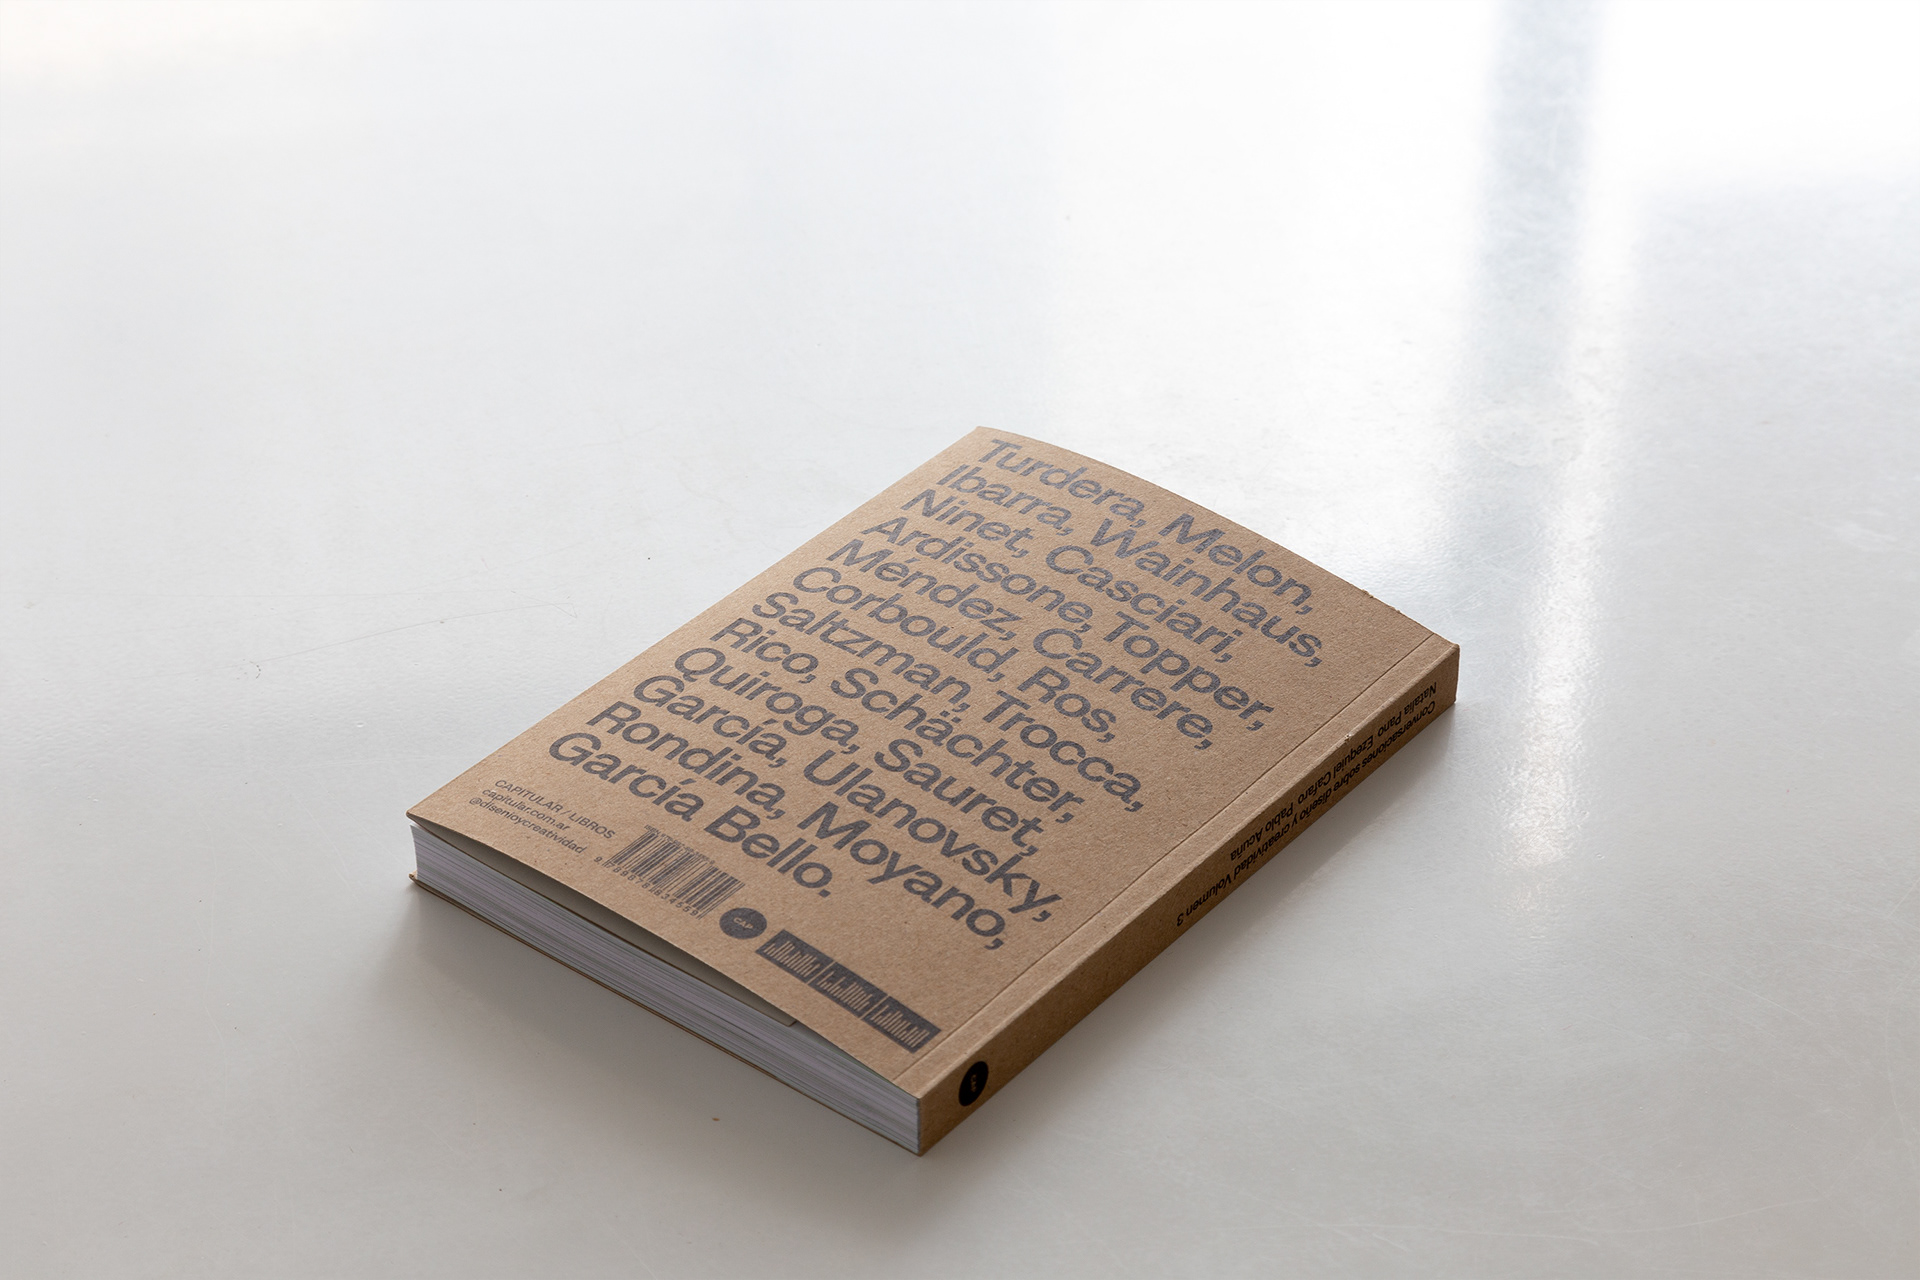 Turdera, Melon,
Ibarra, Wainhaus,
Ninet, Casciari,
Ardissone, Topper,
Méndez, Carrere,
Corbould, Ros,
Saltzman, Trocca,
Rico, Schächter,
Quiroga, Sauret,
García, Ulanovsky,
Rondina, Moyano,
García Bello.
CAPITULAR / LIBROS
capitular.com.ar
@disenioycreatividad
CAP
Conversaciones sobre diseño y creatividad Volumen 3
Natalia Pano Ezequiel Cafaro Pablo Acuña
CAP